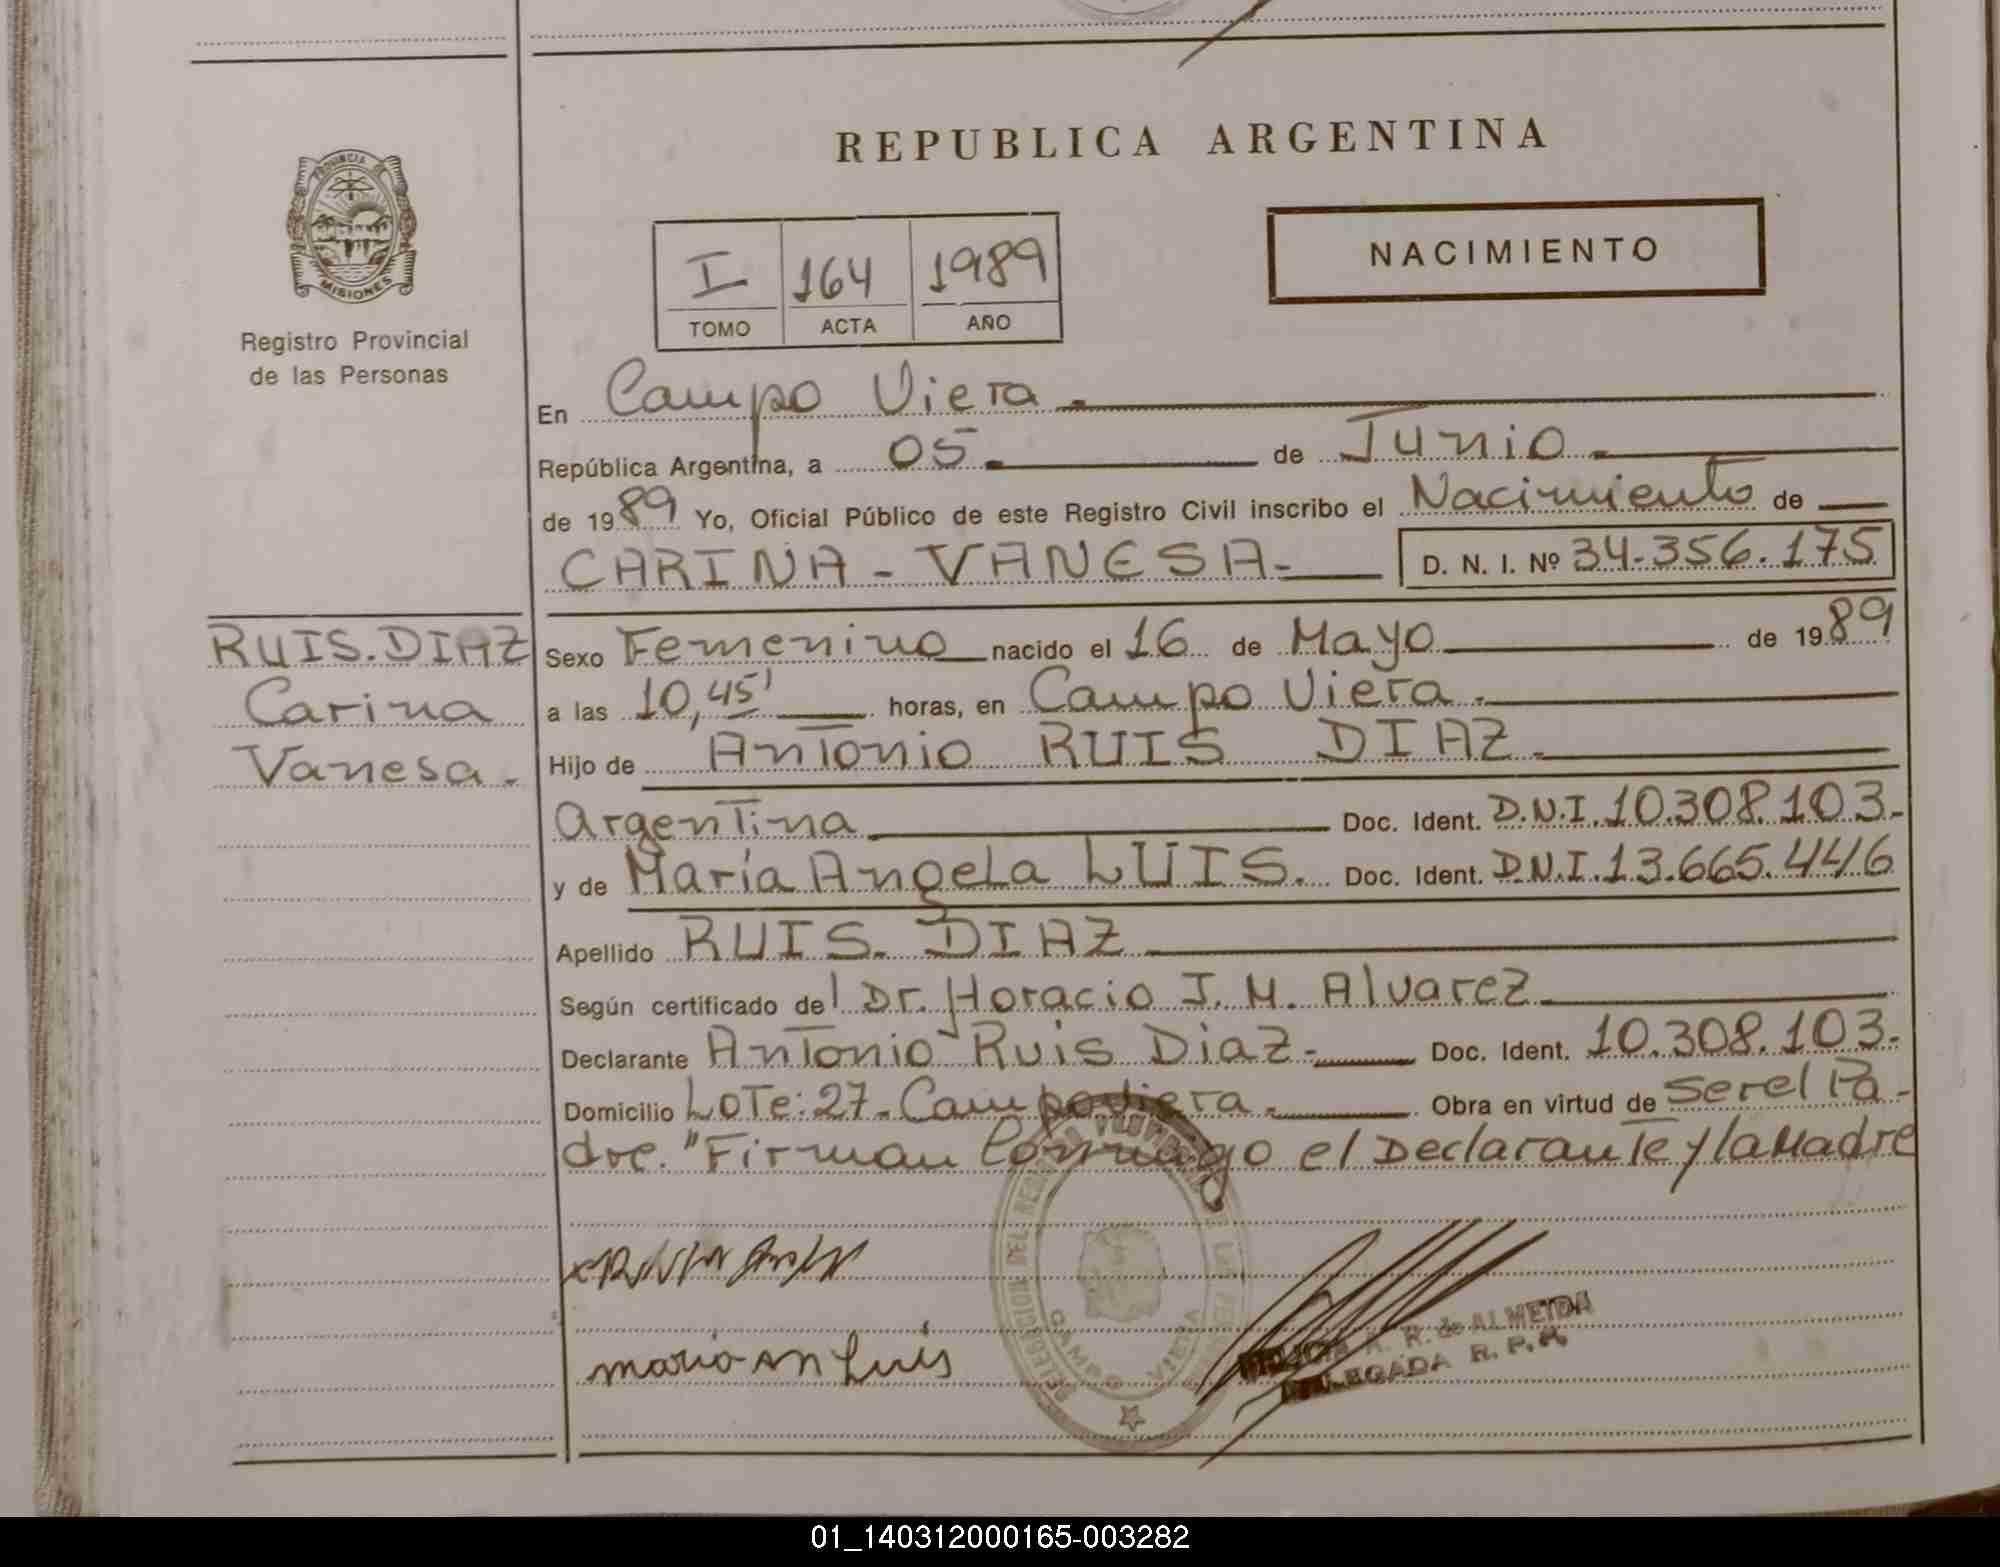 REPUBLICA ARGENTINA
PROVINCIA DE
MISIONES
Registro Provincial
de las Personas
NACIMIENTO
I 164 1989
TOMO ACTA AÑO
En Campo Viera.
República Argentina, a 05. de Junio.
de 1989 Yo, Oficial Público de este Registro Civil inscribo el Nacimiento de
CARINA - VANESA- D. N. I. Nº 34.356.175
RUIS. DIAZ
Carina
Vanesa.
Sexo Femenino nacido el 16 de Mayo de 1989
a las 10,45' horas, en Campo Viera.
Hijo de Antonio RUIS DIAZ.
Argentina Doc. Ident. D.N.I. 10.308.103-
y de María Angela LUIS. Doc. Ident. D.N.I. 13.665.446
Apellido RUIS. DIAZ
Según certificado del Dr. Horacio J. M. Alvarez
Declarante Antonio Ruis Diaz- Doc. Ident. 10.308.103-
Domicilio Lote: 27- Campo Viera. Obra en virtud de ser el Pa-
dre. "Firman Conmigo el Declarante y la Madre
CAMPO VIERA
maria an luis
R. de ALMEIDA
DELEGADA R. P. P.
01_140312000165-003282